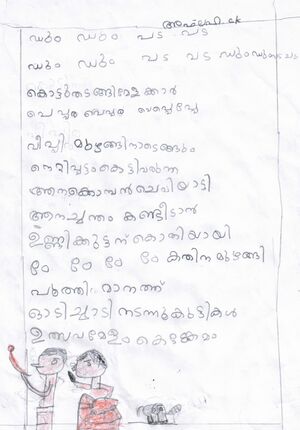 അഫ്ലഹ ck
ഡും ഡും പട പട
ഡും ഡും പട പട ഡുംഡുംപടപട
കൊട്ടുതടങ്ങിമേളക്കാർ
പെ പ്പര പെപ്പര
വീപ്പി മുഴങ്ങിനാടെങ്ങും
നെറ്റിപ്പട്ടംകെട്ടിവരുന്ന
ആനക്കൊമ്പൻചെവിയാട്ടി
ആനച്ചന്തം കണ്ടീടാൻ
ഉണ്ണിക്കുട്ടന് കൊതിയായി
ഠേ ഠേ ഠേ ഠേ കതിന മുഴങ്ങി
പൂത്തിരി മാനത്ത്
ഓടിച്ചാടി നടന്നുകുട്ടികൾ
ഉത്സവമേളം കെങ്കേമം